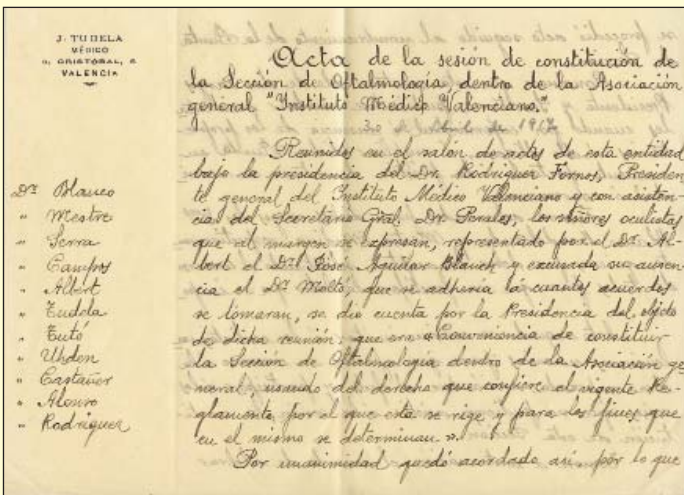 J. TUDELA
MÉDICO
S. CRISTOBAL, 6
VALENCIA
Acta de la sesión de constitución de
la Sección de Oftalmología, dentro de la Asociación
general "Instituto Médico Valenciano."
30 de Abril de
Reunidos en el salón de actos de esta entidad
bajo la presidencia del Dr. Rodriguez Fornos, Presiden
te general del Instituto Médico Valenciano y con asisten-
cia del Secretario Gral. Dr. Porales, los señores oculistas
que al margen se expresan, representado por el Dr. Al-
bert el Dr. José Aguilar Blanch y excusada su ausen-
cia el Dr. Moltó, que se adheria a cuantos acuerdos
se tomaran, se dió cuenta por la Presidencia del objeto
de dicha reunión, que era «Conveniencia de constituir
la Sección de Oftalmología dentro de la Asociación ge
neral, usando del derecho que confiere el vigente Re-
glamento por el que esta se rige y para los fines que
en el mismo se determinan.»
Por unanimidad quedó acordado así, por lo que
Drs. Blanco
" Mestre
" Serra
" Campos
" Albert
" Tudela
" Tutó
" Uhden
" Castañer
" Alonso
" Rodriguez